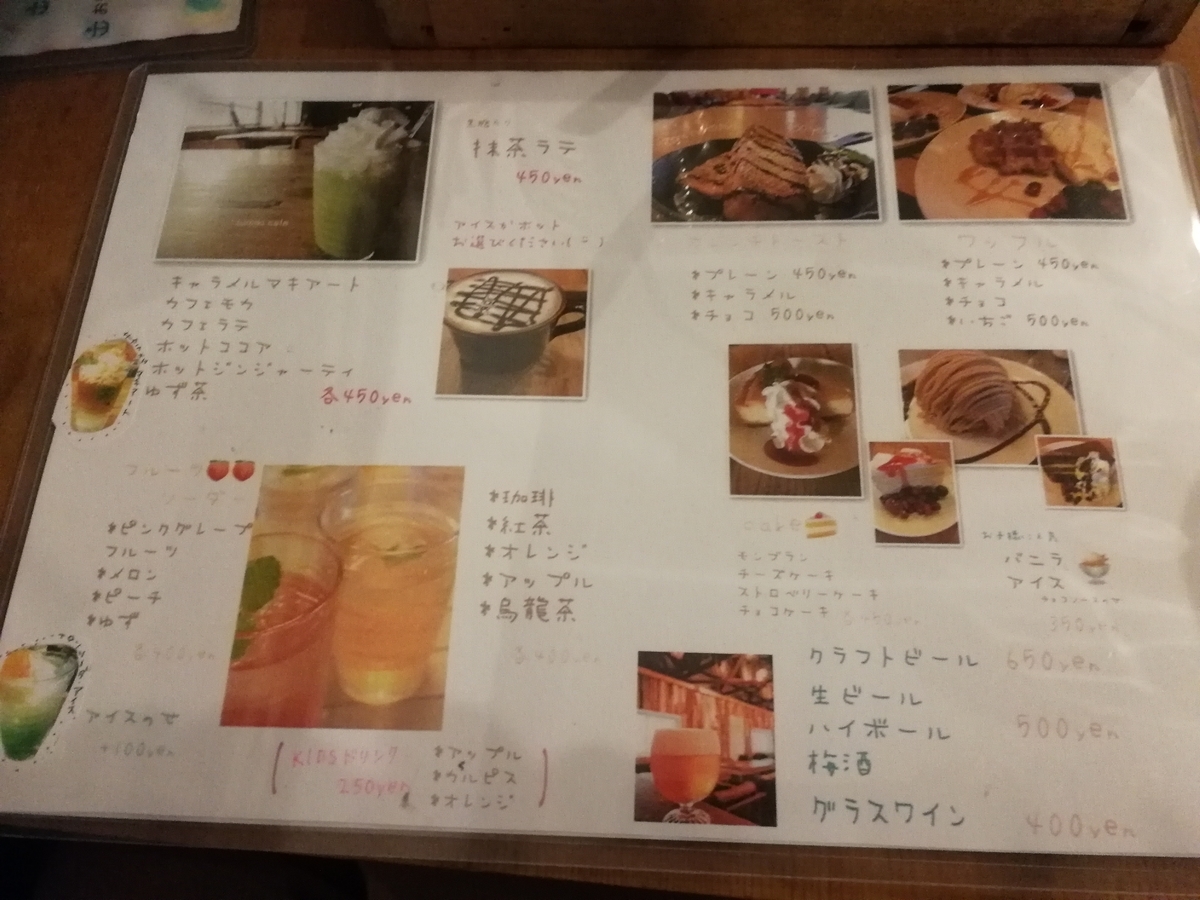 抹茶ラテ
450yen
アイスかホット
お選びください(
キャラメルマキアート
カフェモカ
カフェラテ
ホットココア
ホットジンジャーティ
ゆず茶
各450yen
フルーツ
ソーダー
*ピンクグレープ
フルーツ
*メロン
*ピーチ
*ゆず
各400yen
アイスのせ
+100yen
*珈琲
*紅茶
*オレンジ
*アップル
*烏龍茶
各400yen
KIDSドリンク
250yen
*アップル
*カルピス
*オレンジ
*プレーン 450yen
*キャラメル
*チョコ 500yen
ワッフル
*プレーン 450yen
*キャラメル
*チョコ
*いちご 500yen
cake
モンブラン
チーズケーキ
ストロベリーケーキ
チョコケーキ
バニラ
アイス
350yen
クラフトビール 650yen
生ビール
ハイボール 500yen
梅酒
グラスワイン 400yen